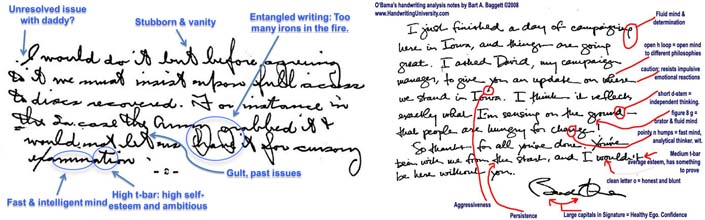 Unresolved issue
with daddy?
Stubborn & vanity
Entangled writing: Too
many irons in the fire.
I would do it but before agreeing
to it we must insist upon full access
to discs recovered. For instance in
the La. case the Army grabbed it &
would not let us have it for cursory
examination.
Gult, past issues
Fast & intelligent mind
High t-bar: high self-
esteem and ambitious
O'Bama's handwriting analysis notes by Bart A. Baggett ©2008
www.HandwritingUniversity.com
I just finished a day of campaigning
here in Iowa, and things are going
great. I asked David, my campaign
manager, to give you an update on where
we stand in Iowa. I think it reflects
exactly what I'm sensing on the ground –
that people are hungry for change!
So thanks for all you've done. You've
been with me from the start, and I wouldn't
be here without you.
Fluid mind &
determination
open h loop = open mind
to different philosophies
caution; resists impulsive
emotional reactions
short d-stem =
independent thinking.
figure 8 g =
orator & fluid mind
pointy n humps = fast mind,
analytical thinker, wit.
Medium t-bar
average esteem, has something
to prove
clean letter o = honest and blunt
Aggressiveness
Persistence
Large capitals in Signature = Healthy Ego. Confidence